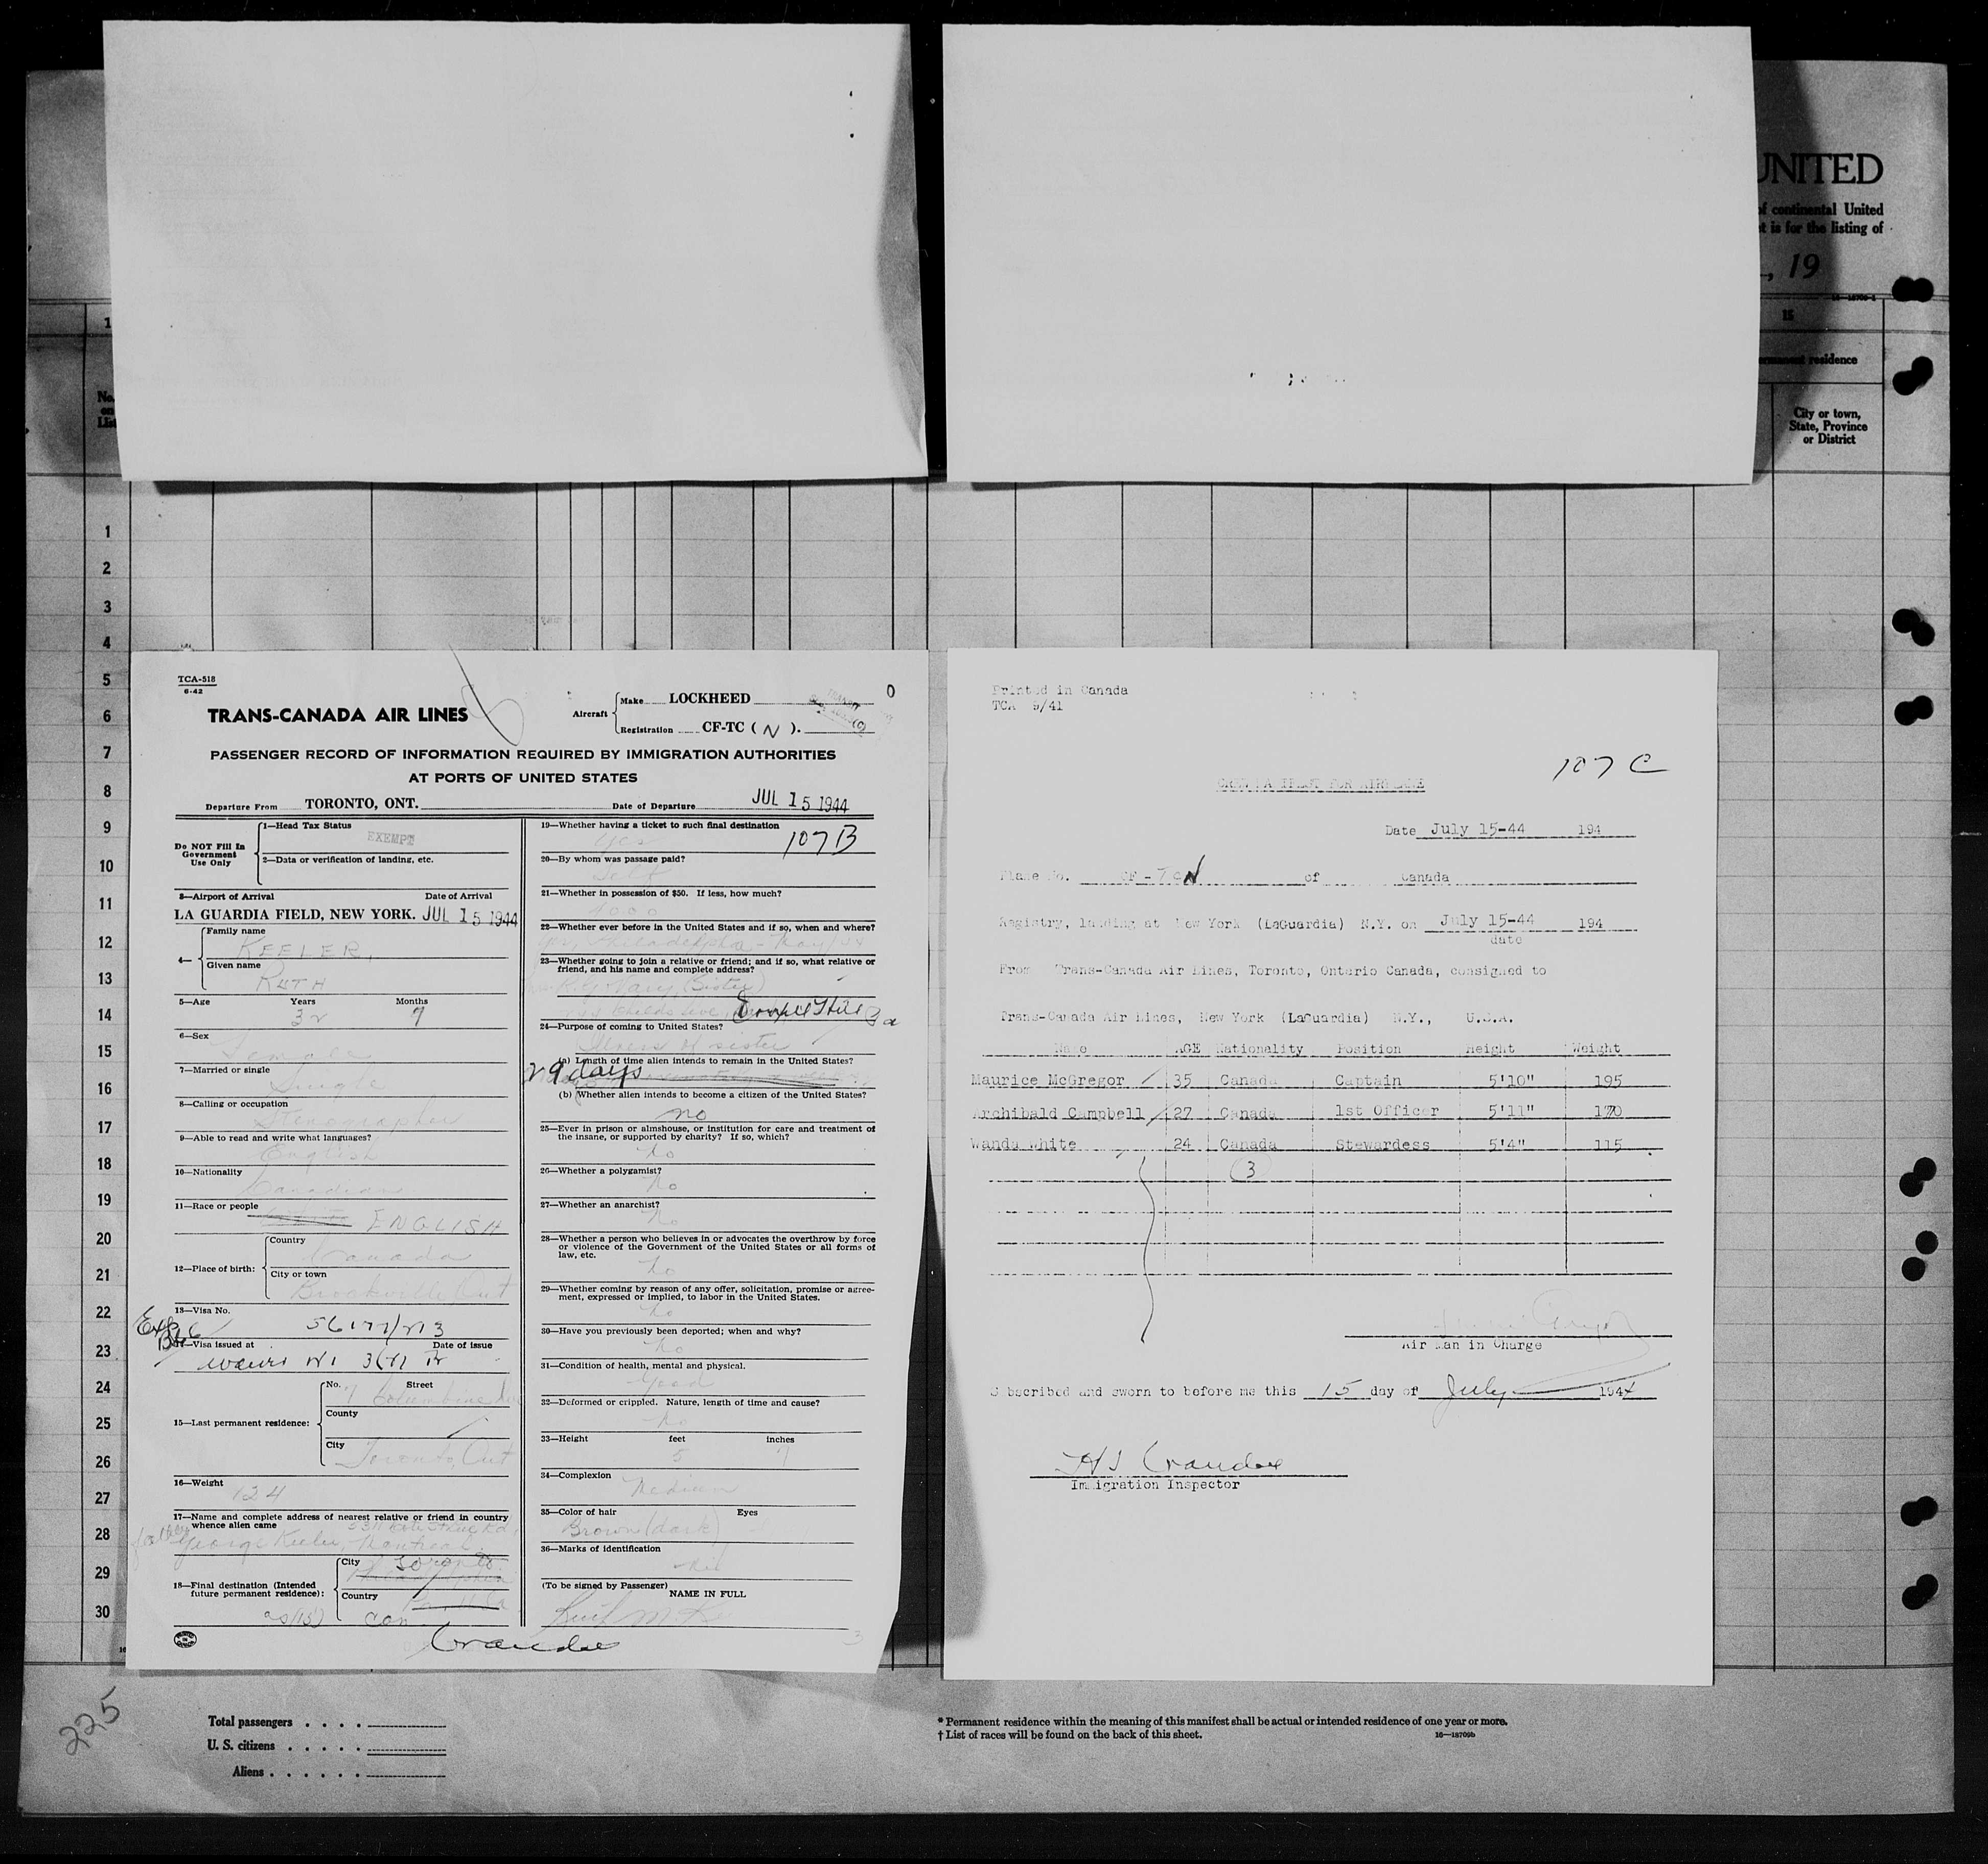 UNITED
of continental United
t is for the listing of
, 19
16-18709-1
1
15
permanent residence
No.
on
List
City or town,
State, Province
or District
1
2
3
4
5
6
7
8
9
10
11
12
13
14
15
16
17
18
19
20
21
22
23
24
25
26
27
28
29
30
TCA-518
6-42
TRANS-CANADA AIR LINES
Aircraft
Make LOCKHEED
Registration CF-TC ( N ).
0
PASSENGER RECORD OF INFORMATION REQUIRED BY IMMIGRATION AUTHORITIES
AT PORTS OF UNITED STATES
Departure From TORONTO, ONT. Date of Departure JUL 15 1944
Do NOT Fill In
Government
Use Only
1—Head Tax Status
EXEMPT
2—Data or verification of landing, etc.
3—Airport of Arrival Date of Arrival
LA GUARDIA FIELD, NEW YORK. JUL 15 1944
4—
Family name
KEELER,
Given name
RUTH
5—Age Years Months
32 9
6—Sex
Female
7—Married or single
Single
8—Calling or occupation
Stenographer
9—Able to read and write what languages?
English
10—Nationality
Canadian
11—Race or people
ENGLISH
12—Place of birth:
Country
Canada
City or town
Brockville Ont
13—Visa No.
14—Visa issued at Date of issue
15—Last permanent residence:
No. Street
7 Columbine Ave
County
City
Toronto, Ont
16—Weight
124
17—Name and complete address of nearest relative or friend in country
whence alien came
father George Keeler, Montreal
18—Final destination (Intended
future permanent residence):
City
Toronto
Country
Can
as (15)
19—Whether having a ticket to such final destination
yes
107B
20—By whom was passage paid?
Self
21—Whether in possession of $50. If less, how much?
22—Whether ever before in the United States and if so, when and where?
yes, Philadelphia - May/34
23—Whether going to join a relative or friend; and if so, what relative or
friend, and his name and complete address?
(Sister)
24—Purpose of coming to United States?
Illness of sister
(a) Length of time alien intends to remain in the United States?
29 days
(b) Whether alien intends to become a citizen of the United States?
no
25—Ever in prison or almshouse, or institution for care and treatment of
the insane, or supported by charity? If so, which?
No
26—Whether a polygamist?
No
27—Whether an anarchist?
No
28—Whether a person who believes in or advocates the overthrow by force
or violence of the Government of the United States or all forms of
law, etc.
No
29—Whether coming by reason of any offer, solicitation, promise or agree-
ment, expressed or implied, to labor in the United States.
No
30—Have you previously been deported; when and why?
No
31—Condition of health, mental and physical.
Good
32—Deformed or crippled. Nature, length of time and cause?
No
33—Height feet inches
5 7
34—Complexion
Medium
35—Color of hair Eyes
Brown (dark)
36—Marks of identification
(To be signed by Passenger) NAME IN FULL
Ruth M. K
Crandee
Printed in Canada
TCA 9/41
107 C
CREW MANIFEST FOR AIRPLANE
Date July 15-44 194
Plane No. CF-TCN of Canada
Registry, landing at New York (LaGuardia) N.Y. on July 15-44 194
date
From Trans-Canada Air Lines, Toronto, Ontario Canada, consigned to
Trans-Canada Air Lines, New York (LaGuardia) N.Y., U.S.A.
Name AGE Nationality Position Height Weight
Maurice McGregor 35 Canada Captain 5'10" 195
Archibald Campbell 27 Canada 1st Officer 5'11" 170
Wanda White 24 Canada Stewardess 5'4" 115
3
Air Man in Charge
Subscribed and sworn to before me this 15 day of July 1944
HJ Crandee
Immigration Inspector
225
Total passengers . . . .
U. S. citizens . . . . .
Aliens . . . . . .
* Permanent residence within the meaning of this manifest shall be actual or intended residence of one year or more.
† List of races will be found on the back of this sheet. 16—18709b